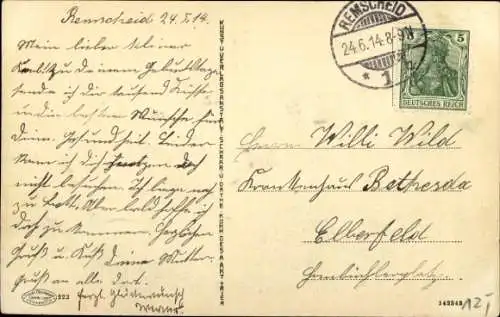 Remscheid 24.6.14.
Mein lieber kleiner
Karl! Zu deinem Geburtstage
sende ich dir tausend Küsse
und die besten Wünsche für
Deine Gesundheit. Leider
kann ich dich heute doch
nicht besuchen. Ich liege noch
zu Bett. Aber bald hoffe ich
doch zu kommen. Herzlichen
Gruß u. Kuß Deine Mutter.
Gruß an alle dort.
herzl. Glückwunsch
Werner.
REMSCHEID
24.6.14.8-9N
* 1
5
DEUTSCHES REICH
Herrn Willi Wild
Krankenhaus Bethesda
Elberfeld
Hombüchlerplatz.
323
143545
12,-